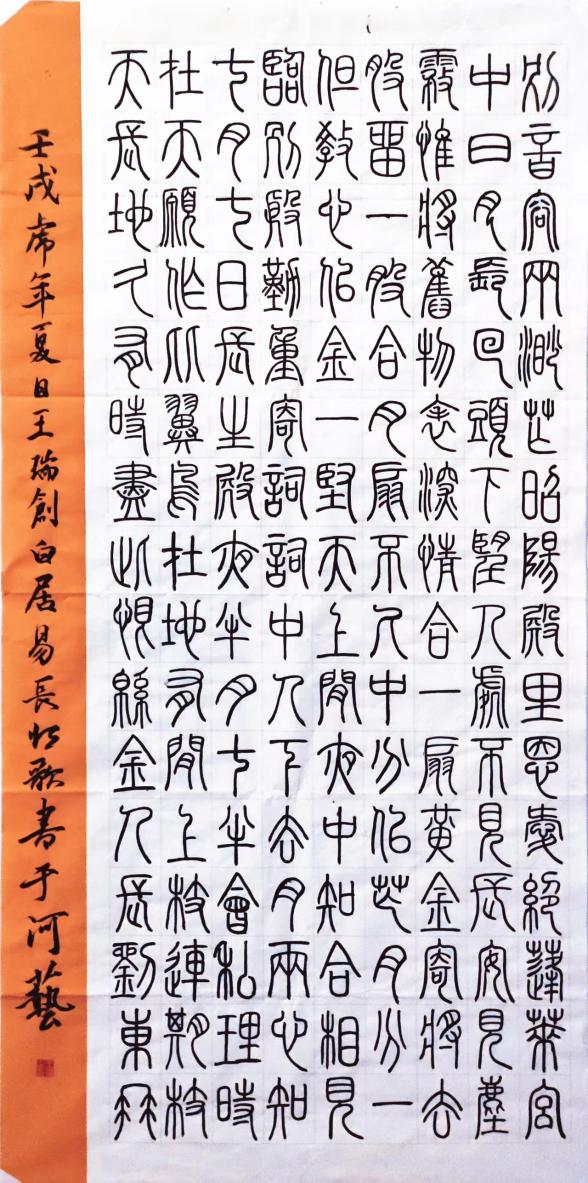 别音容兩渺茫昭陽殿里恩愛絕蓬萊宮
中日月長回頭下望人處不見長安見塵
霧惟將舊物表深情合一扇黃金寄將去
股留一股合月扇不人中分佀芘月分一
但教心佀金一堅天上間夜中知合相見
臨别殷勤重寄詞詞中人下去月兩心知
七月七日長生殿夜半月七半會私理時
在天願作比翼鳥在地有間上枝連期枝
天長地久有時盡此恨綿金人長劉東無
壬戌虎年夏日王瑞創白居易長恨歌書于河藝